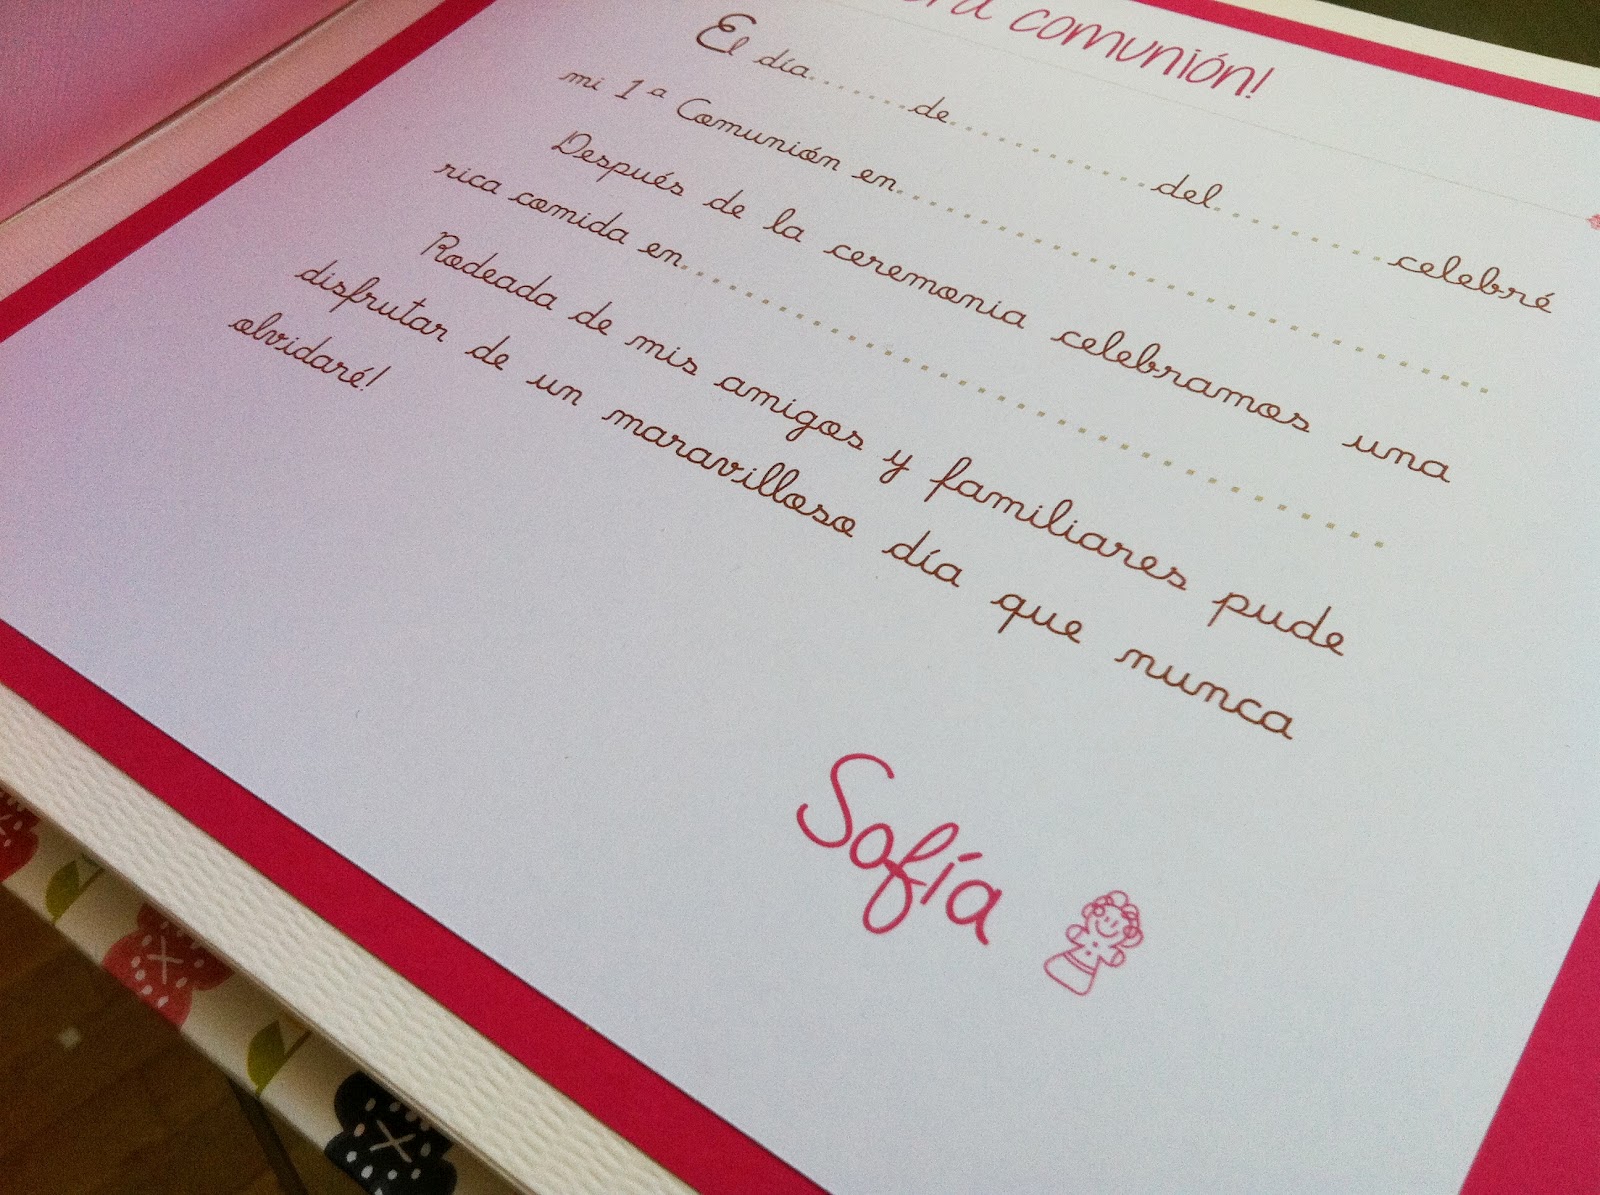 comunión!
El día.......de............del...........celebré
mi 1ª Comunión en.................................
Después de la ceremonia celebramos una
rica comida en.......................................
Rodeada de mis amigos y familiares pude
disfrutar de un maravilloso día que nunca
olvidaré!
Sofía